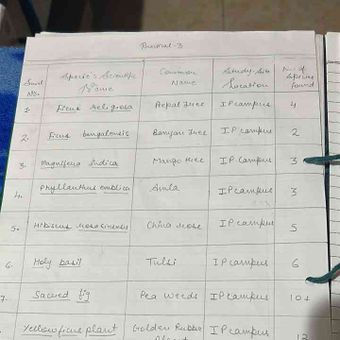 Practical-3
Serial No. Species Scientific Name Common Name Study Site Location No. of Species found
1. Ficus religiosa Peepal Tree I P campus 4
2. Ficus bengalensis Banyan Tree I P campus 2
3. Magnifera indica Mango tree I P Campus 3
4. Phyllanthus emblica Amla I P campus 3
5. Hibiscus rosasinensis China rose I P campus 5
6. Holy basil Tulsi I P campus 6
7. Sacred fig Pea weeds I P campus 10+
Yellow ficus plant Golden Rubber I P campus